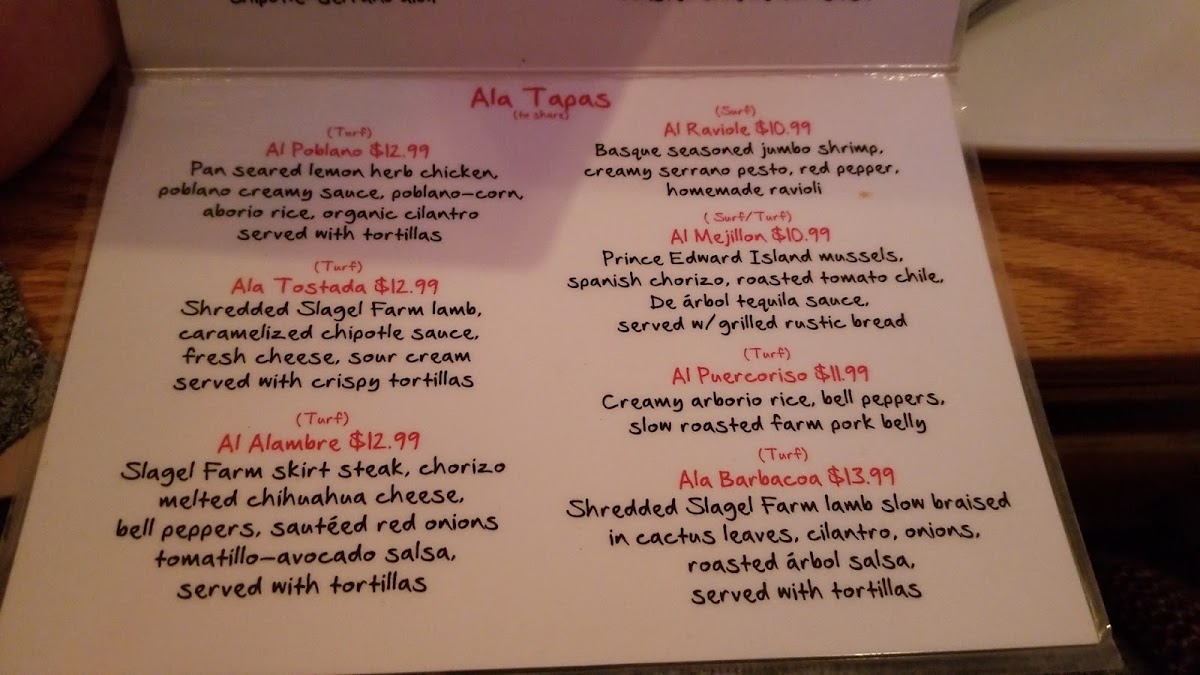 Ala Tapas
(to share)
(Turf)
Al Poblano $12.99
Pan seared lemon herb chicken,
poblano creamy sauce, poblano-corn,
aborio rice, organic cilantro
served with tortillas
(Turf)
Ala Tostada $12.99
Shredded Slagel Farm lamb,
caramelized chipotle sauce,
fresh cheese, sour cream
served with crispy tortillas
(Turf)
Al Alambre $12.99
Slagel Farm skirt steak, chorizo
melted chihuahua cheese,
bell peppers, sautéed red onions
tomatillo-avocado salsa,
served with tortillas
(Surf)
Al Raviole $10.99
Basque seasoned jumbo shrimp,
creamy serrano pesto, red pepper,
homemade ravioli
(Surf/Turf)
Al Mejillon $10.99
Prince Edward Island mussels,
spanish chorizo, roasted tomato chile,
De árbol tequila sauce,
served w/grilled rustic bread
(Turf)
Al Puercoriso $11.99
Creamy arborio rice, bell peppers,
slow roasted farm pork belly
(Turf)
Ala Barbacoa $13.99
Shredded Slagel Farm lamb slow braised
in cactus leaves, cilantro, onions,
roasted árbol salsa,
served with tortillas